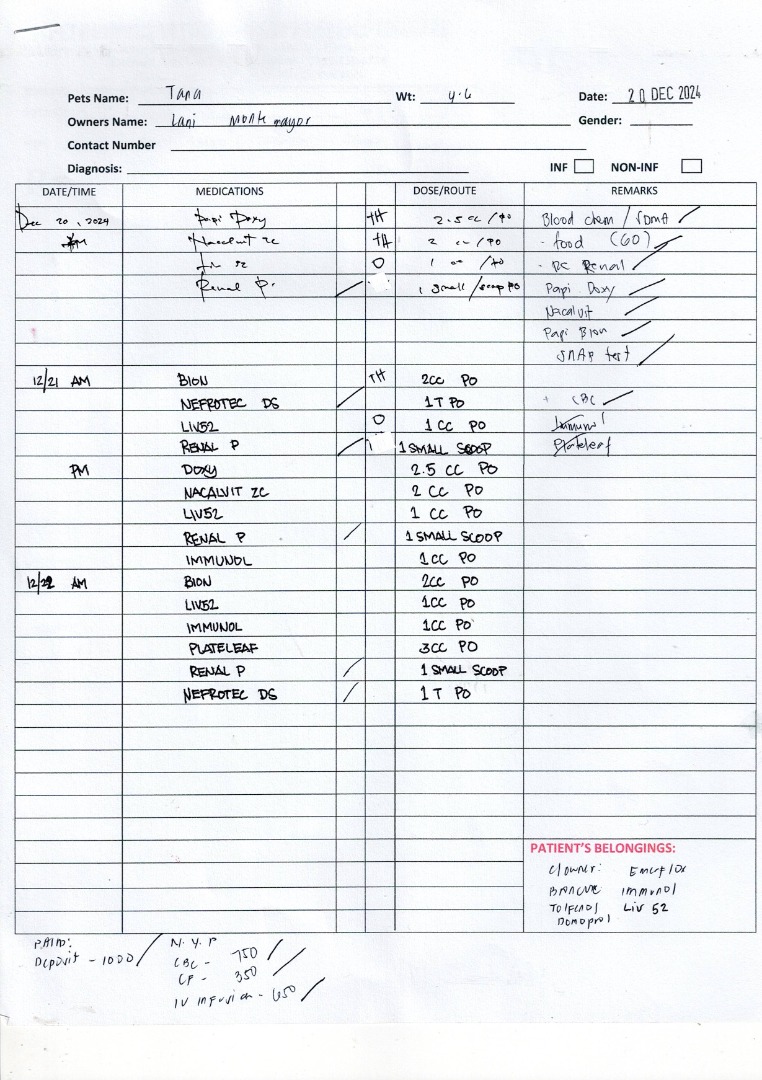 Pets Name: Tana Wt: 4.6 Date: 20 DEC 2024
Owners Name: Lani Montemayor Gender:
Contact Number
Diagnosis: INF NON-INF
DATE/TIME MEDICATIONS DOSE/ROUTE REMARKS
Dec 20, 2024 Papi Doxy TH 2.5 cc / PO Blood chem / SDMA
Nacalvit zc TH 2 cc / PO - food (60)
Liv 52 O 1 cc / PO - RC Renal
Renal P. 1 small / scoop PO Papi Doxy
Nacalvit
Papi Bion
SNAP test
12/21 AM BION TH 2CC PO
NEFROTEC DS 1 T PO + CBC
LIV52 O 1 CC PO Immunol
RENAL P 1 SMALL SCOOP Plateleaf
PM DOXY 2.5 CC PO
NACALVIT ZC 2 CC PO
LIV52 1 CC PO
RENAL P 1 SMALL SCOOP
IMMUNOL 1CC PO
12/22 AM BION 2CC PO
LIV52 1CC PO
IMMUNOL 1CC PO
PLATELEAF 3CC PO
RENAL P 1 SMALL SCOOP
NEFROTEC DS 1 T PO
PATIENT'S BELONGINGS:
c/owner: Emerflox
Immunol
Tolfenol Liv 52
Domoprol
PAID: N.Y.P
Deposit - 1000 CBC - 750
CF - 350
IV infusion - 650